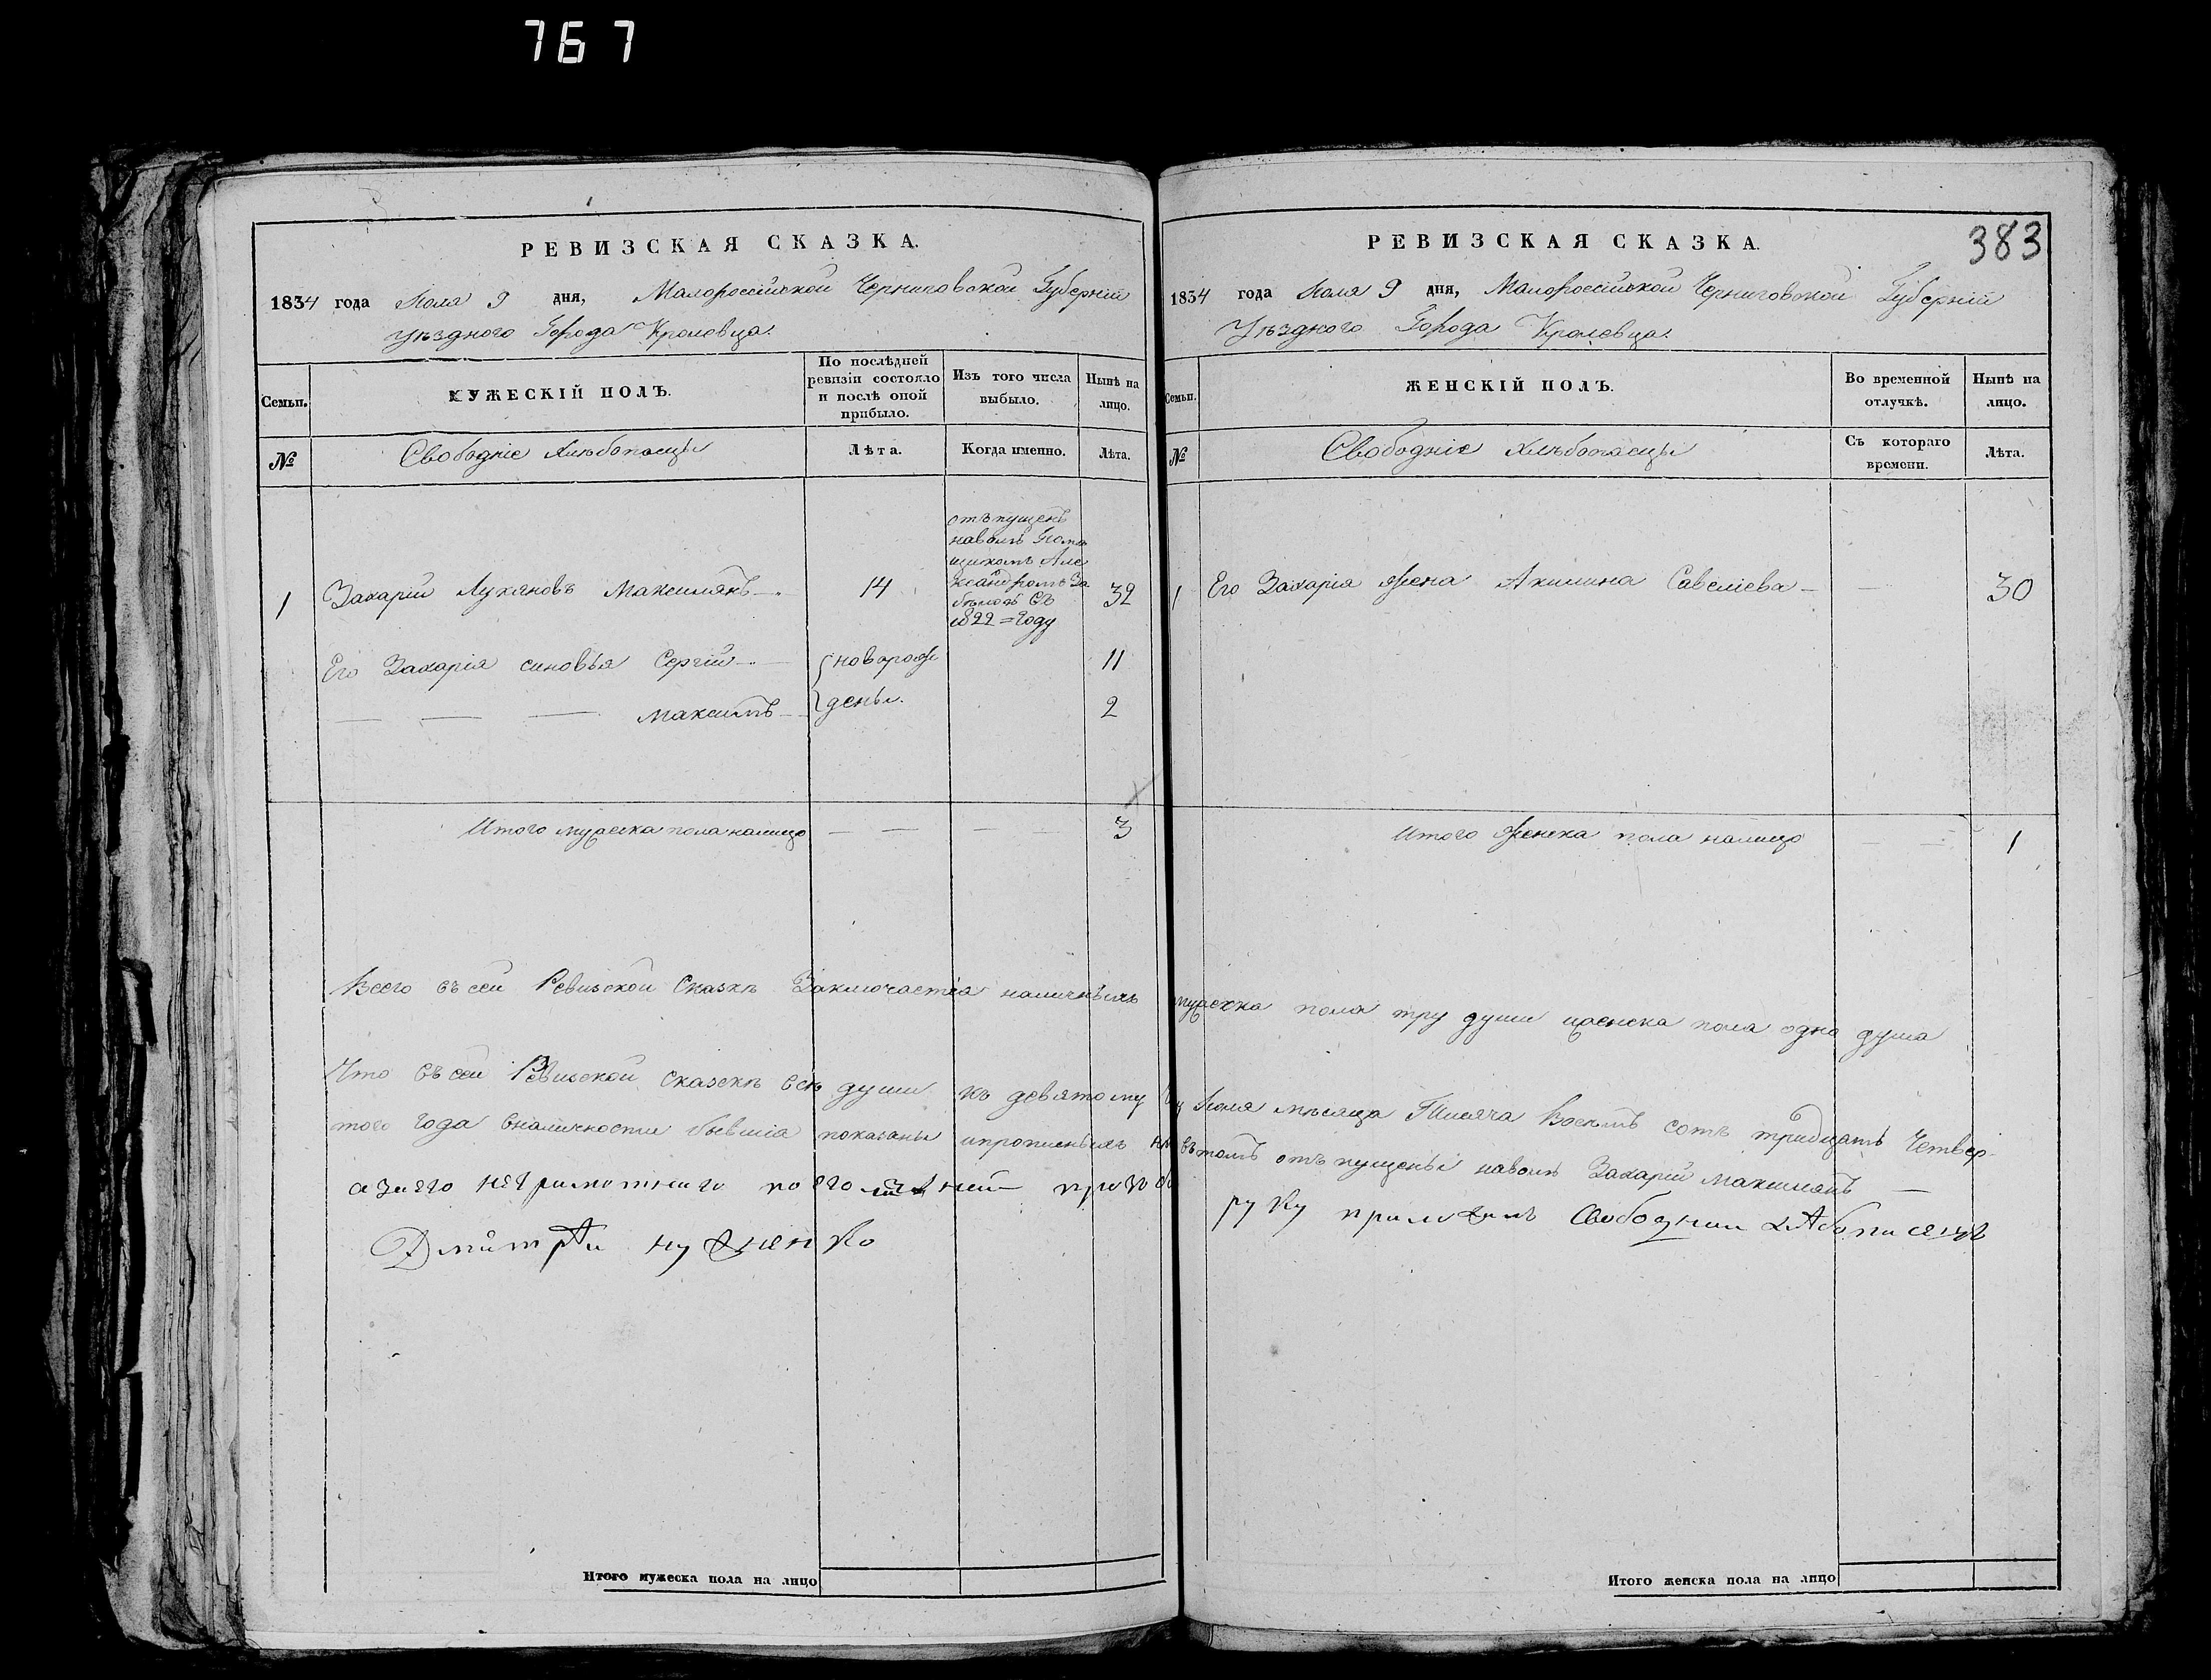 767
РЕВИЗСКАЯ СКАЗКА.
1834 года Іюля 9 дня, Малороссийской Черниговской Губерніи
Уѣздного Города Кролевца.
Семьи.
МУЖЕСКІЙ ПОЛЪ.
По послѣдней ревизіи состояло и послѣ оной прибыло.
Изъ того числа выбыло.
Нынѣ на лицо.
№
Свободніе хлѣбопасцы
Лѣта.
Когда именно.
Лѣта.
отъпущенъ
наволю Поме
щикомъ Але
ксандромъ За
въ
1822 = году
1 Захарій Лукяновъ Максимякъ 14 32
Его Захарія синовья Сергій новорож 11
Максимъ дены. 2
Итого мужеска пола налицо 3
Всего въ сей Ревизской Сказкѣ Заключается наличныхъ
Что въ сей Ревизской сказскѣ всѣ души къ девятому
того года вналичности бывшіа показаны ипрописныхъ
азнего неграмотнаго по его прозбѣ
Дмитрій
Итого мужеска пола на лицо
383
РЕВИЗСКАЯ СКАЗКА.
1834 года Іюля 9 дня, Малороссийской Черниговской Губерніи
Уѣздного Города Кролевца.
Семьи.
ЖЕНСКІЙ ПОЛЪ.
Во временной отлучкѣ.
Нынѣ на лицо.
№
Свободніе хлѣбопасцы
Съ котораго времени.
Лѣта.
1 Его Захарія жена Акилина Савеліева 30
Итого женска пола налицо 1
мужеска пола три души женска пола одна душа
Іюля мѣсяца Тисяча Восемъ сотъ тридцать Четвер-
отъпущены наволю Захарій Максимякъ
руку приложилъ Свободнии
Итого женска пола на лицо